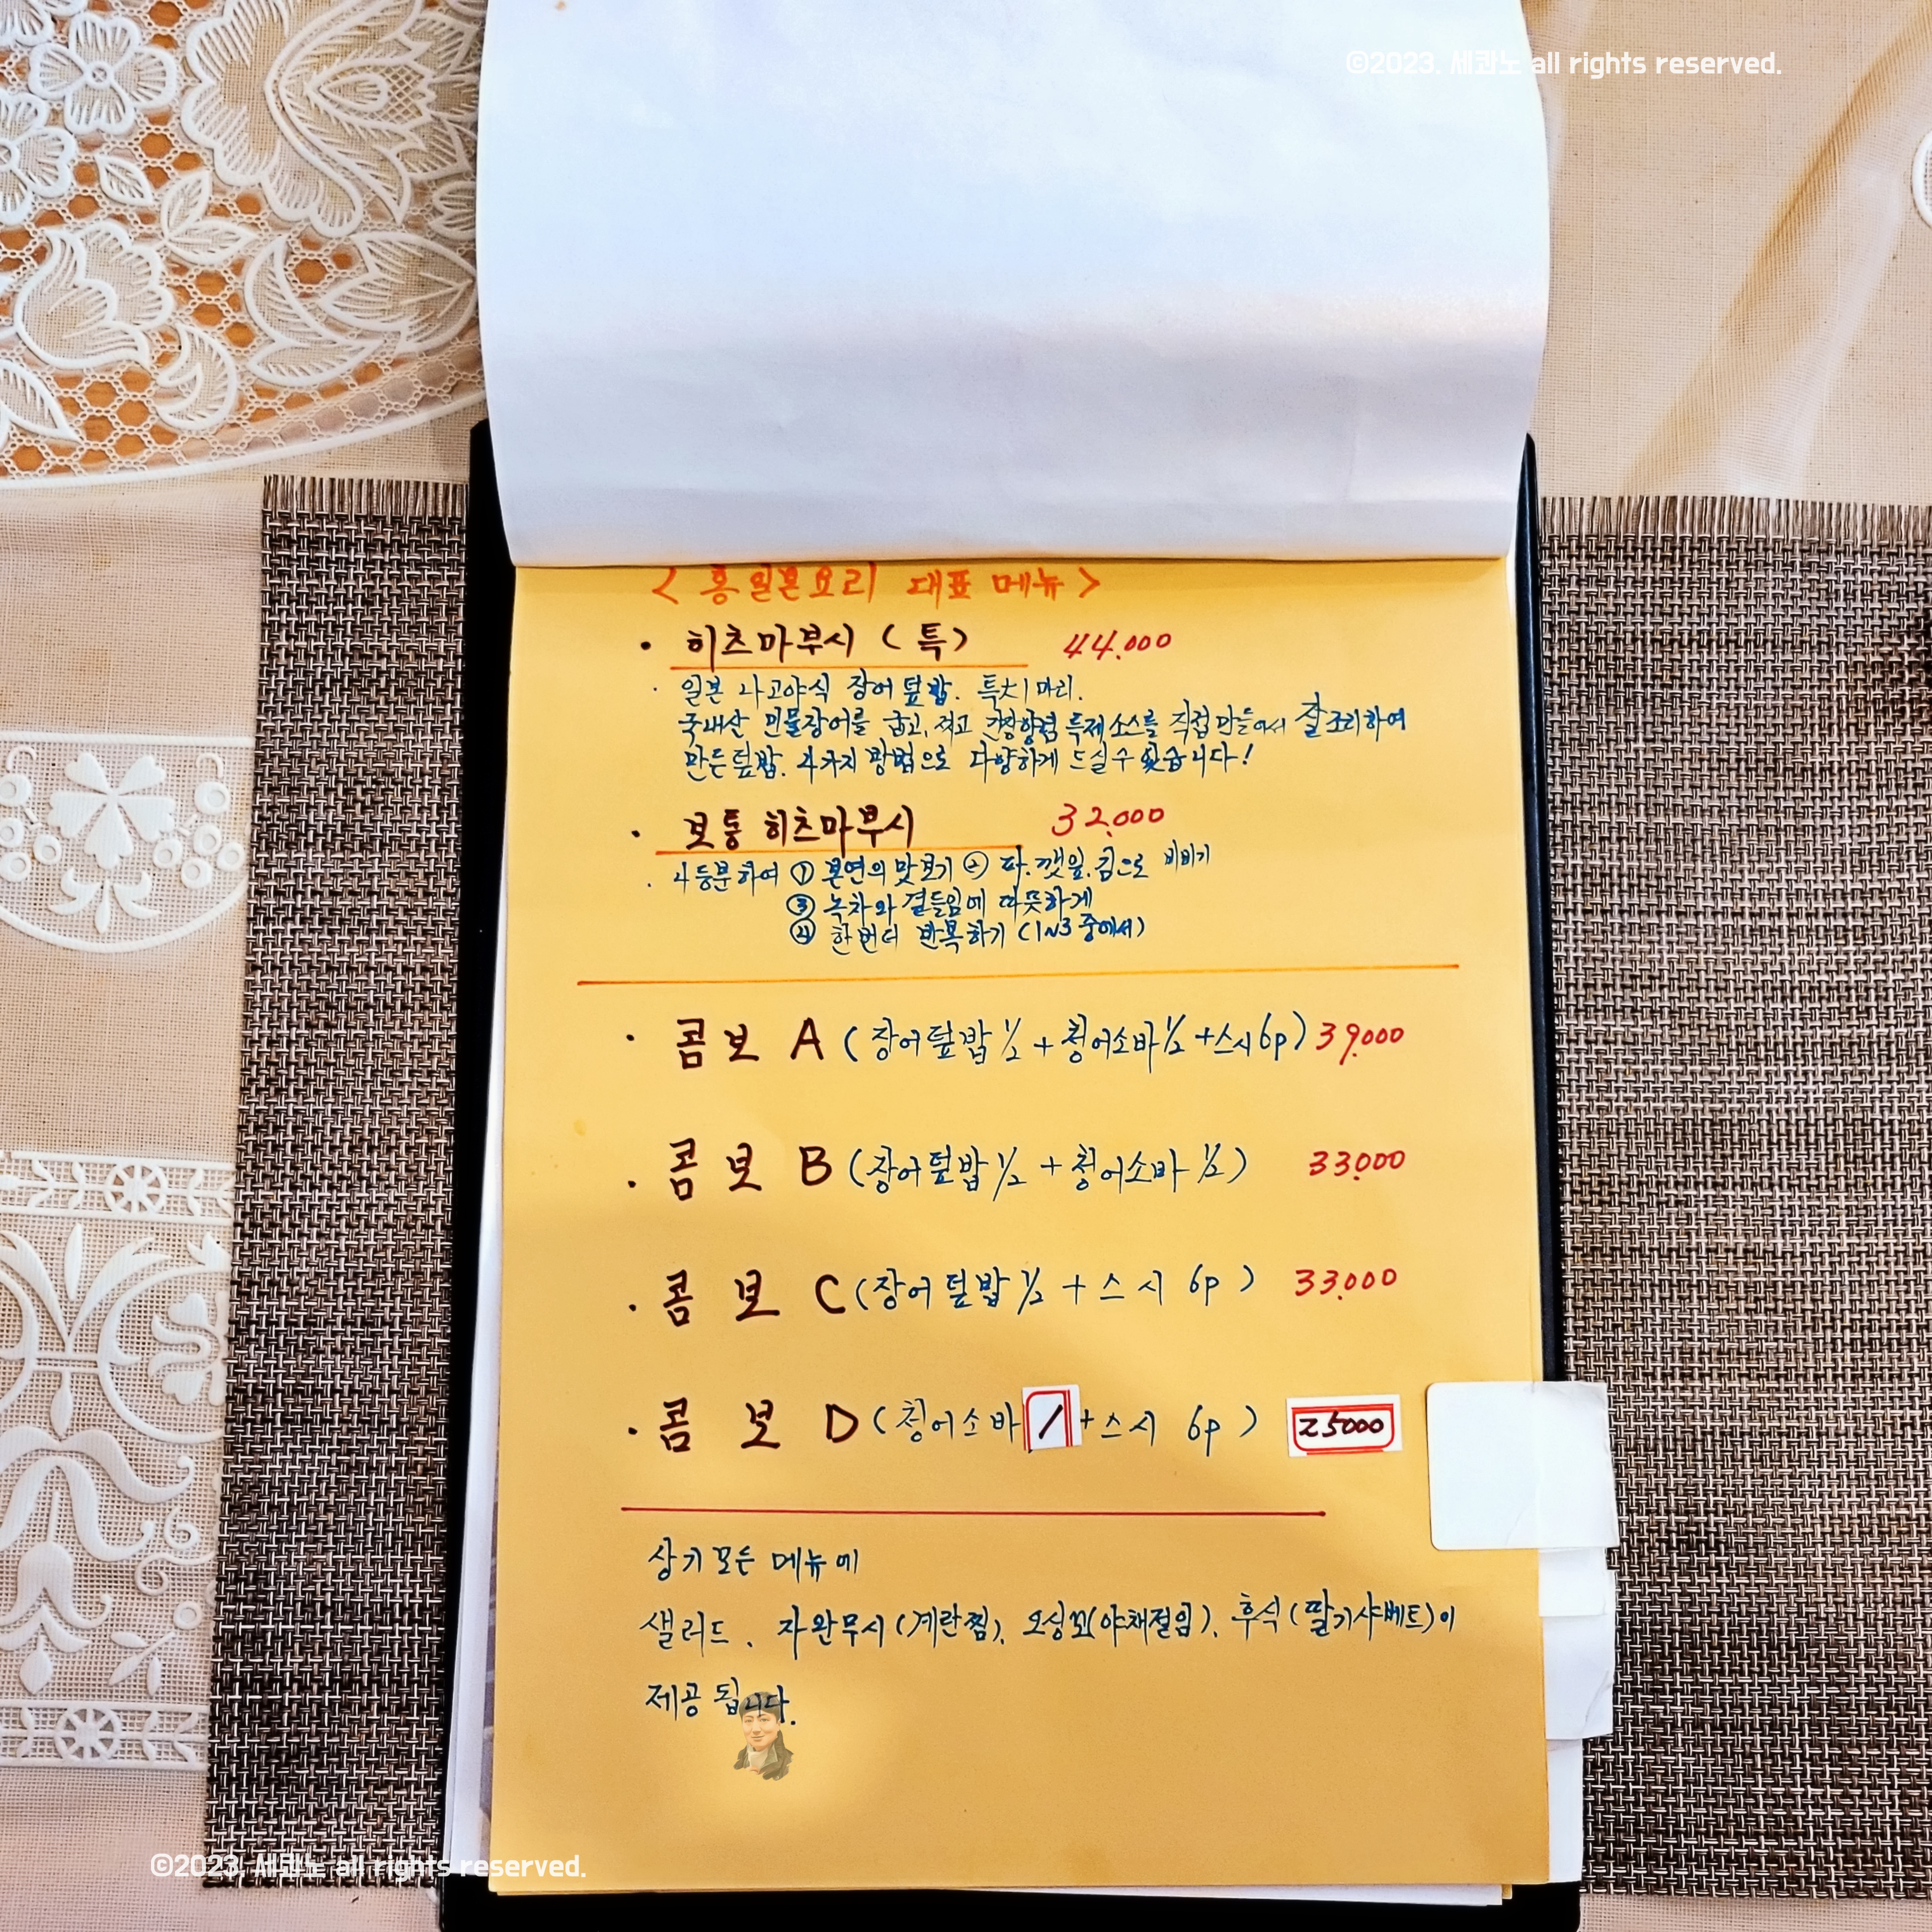 ©2023. 세콰노 all rights reserved.
< 홍일본요리 대표 메뉴 >
· 히츠마부시 ( 특 ) 44.000
· 일본 나고야식 장어 덮밥. 특大1마리.
국내산 민물장어를 굽고, 쪄고 간장향껌 특제소스를 직접 만들어서 잘 조리하여
만든 덮밥. 4가지 방법으로 다양하게 드실 수 있습니다!
· 보통 히츠마부시 32.000
· 4등분하여 ① 본연의 맛보기 ② 파.깻잎.김으로 비비기
③ 녹차와 곁들임에 따뜻하게
④ 한번더 반복하기 (1~3중에서)
· 콤보 A ( 장어덮밥 1/2 + 청어소바 1/2 + 스시 6p ) 39.000
· 콤보 B ( 장어덮밥 1/2 + 청어소바 1/2 ) 33.000
· 콤보 C ( 장어덮밥 1/2 + 스시 6p ) 33.000
· 콤보 D ( 청어소바 1 + 스시 6p ) 25000
상기 모든 메뉴에
샐러드 . 자완무시 (계란찜). 오싱꼬(야채절임). 후식 (딸기샤베트)이
제공 됩니다.
©2023. 세콰노 all rights reserved.